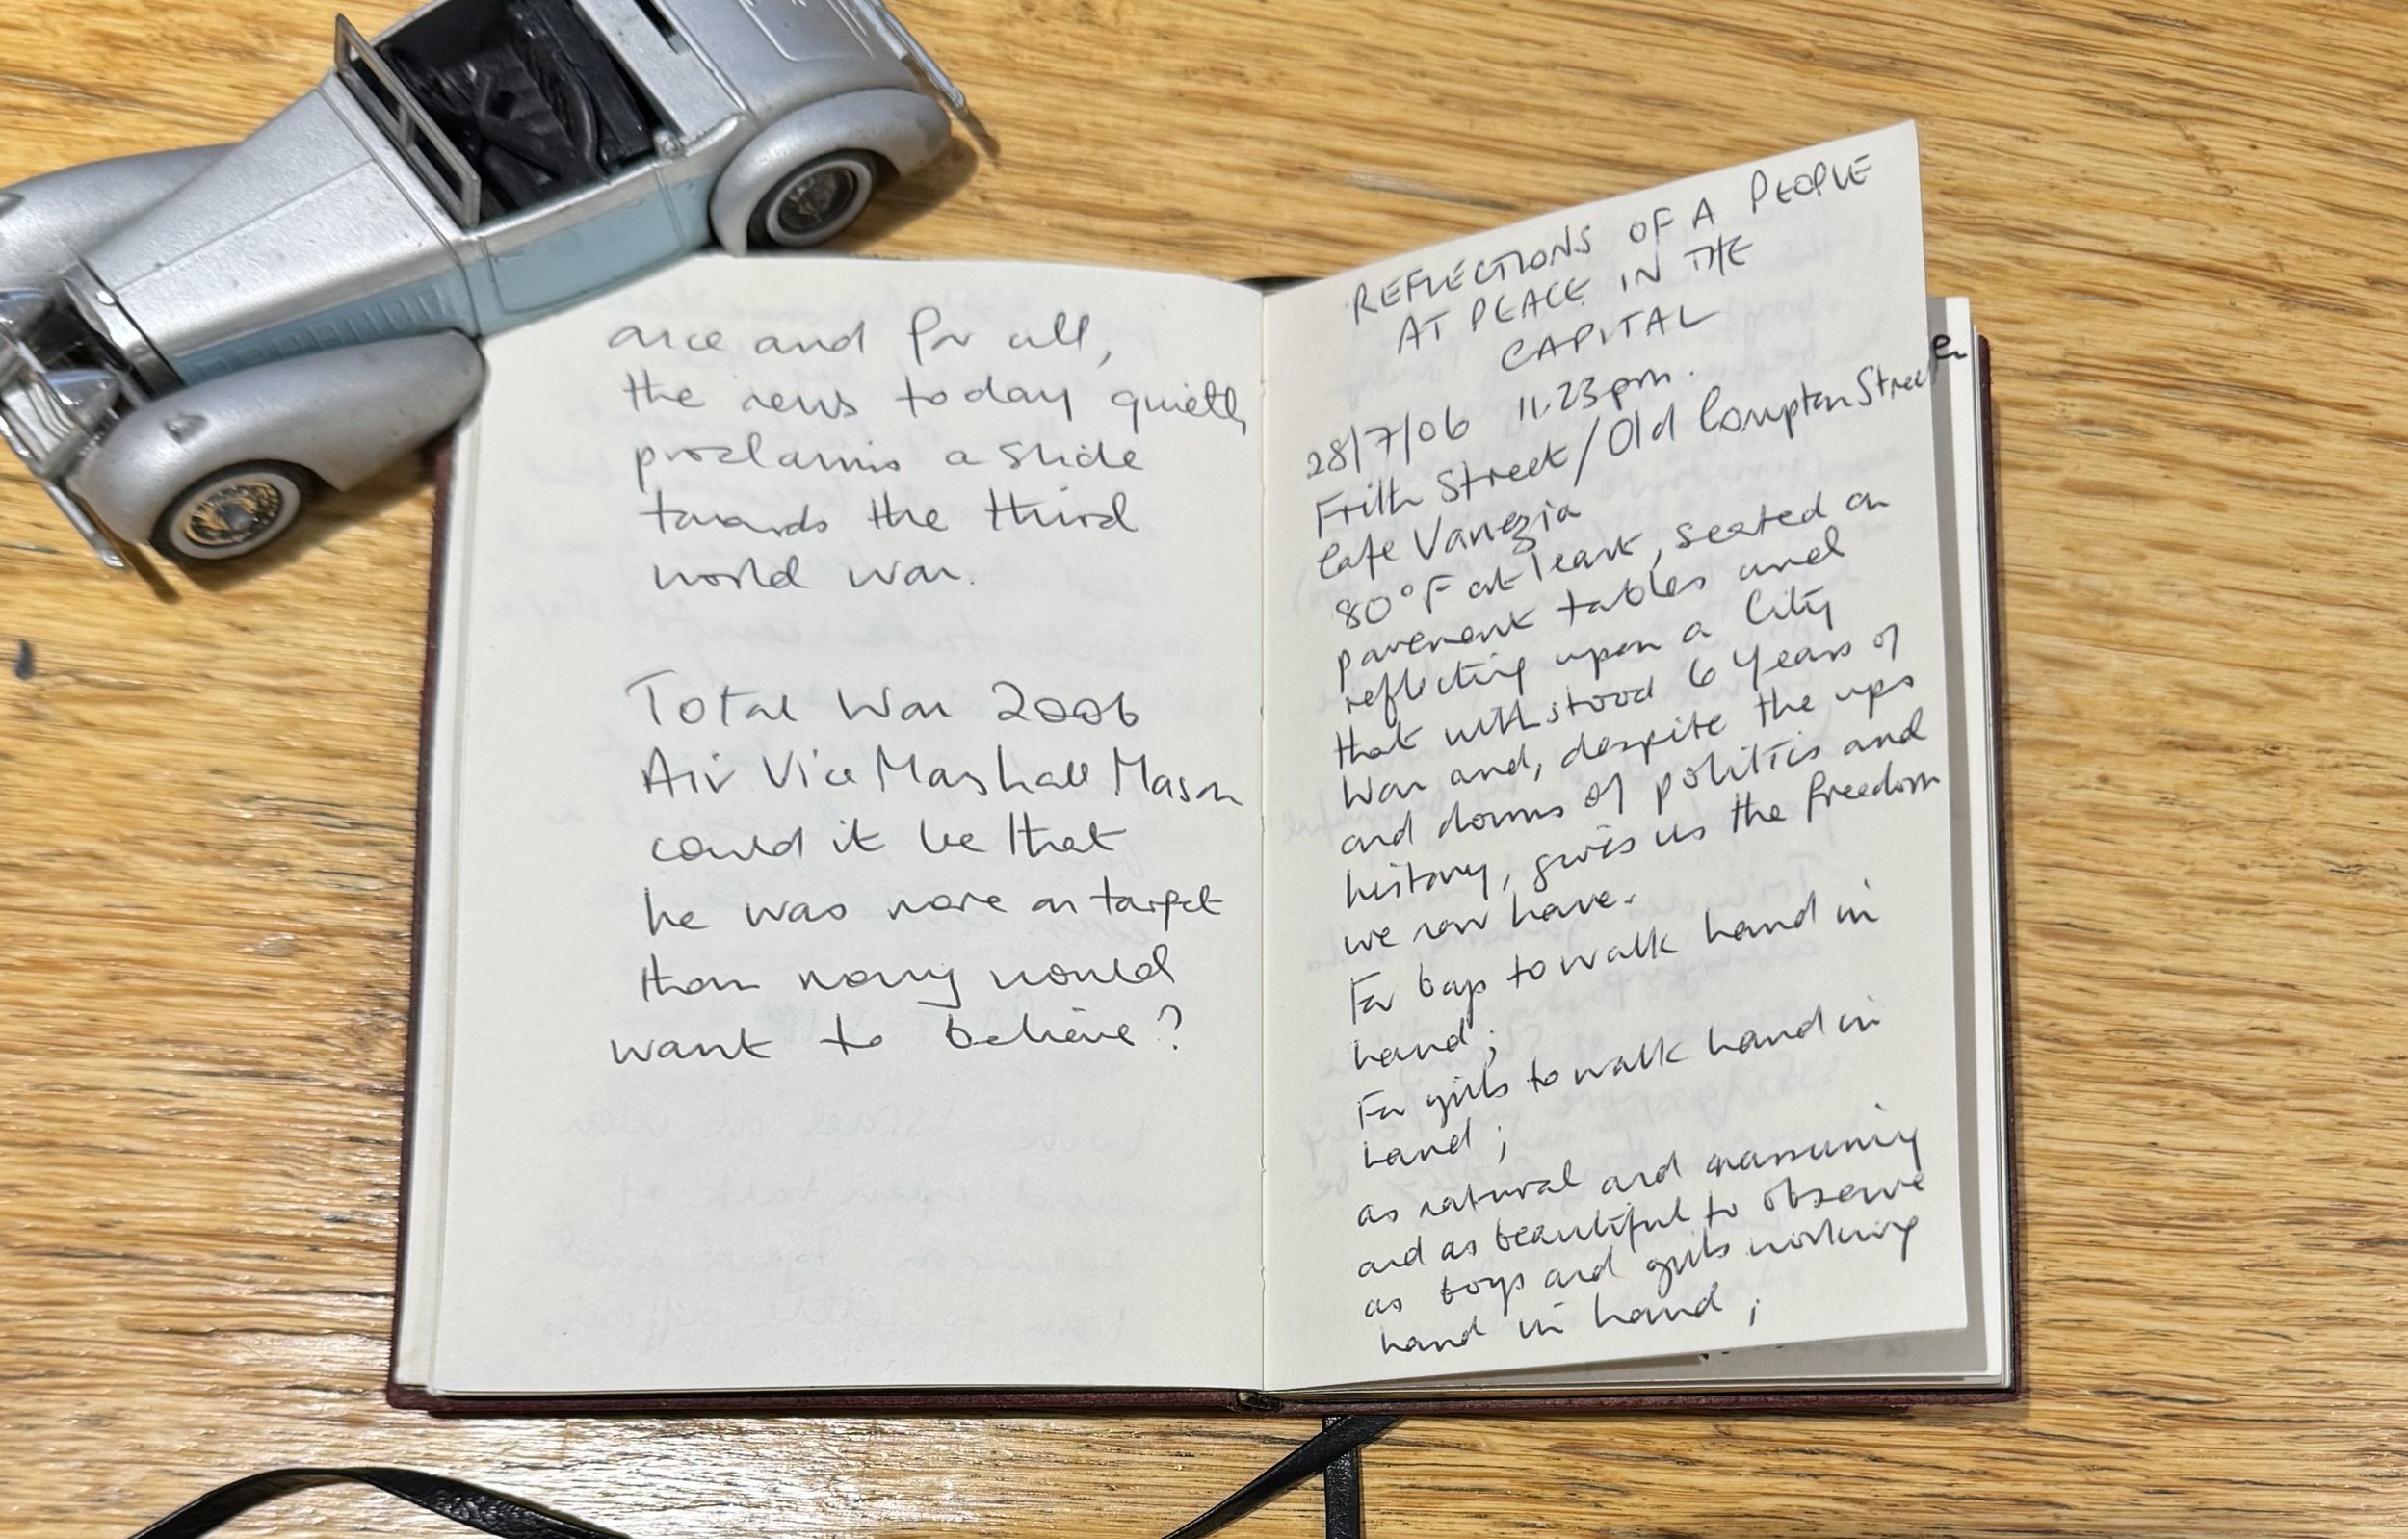 once and for all,
the news today quietly
proclaims a slide
towards the third
world war.
Total War 2006
Air Vice Marshall Mason
could it be that
he was more on target
than many would
want to believe?
REFLECTIONS OF A PEOPLE
AT PEACE IN THE
CAPITAL
28/7/06 11.23pm.
Frith Street/Old Compton Street
Cafe Vanezia
80°F at least, seated on
pavement tables and
reflecting upon a City
that withstood 6 years of
war and, despite the ups
and downs of politics and
history, gives us the freedom
we now have.
For boys to walk hand in
hand;
For girls to walk hand in
hand;
as natural and
and as beautiful to observe
as boys and girls walking
hand in hand;